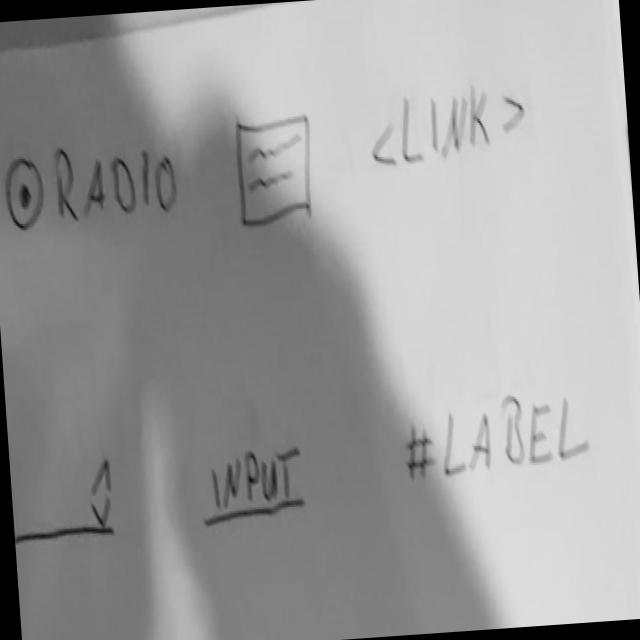 RADIO
<LINK>
INPUT
#LABEL